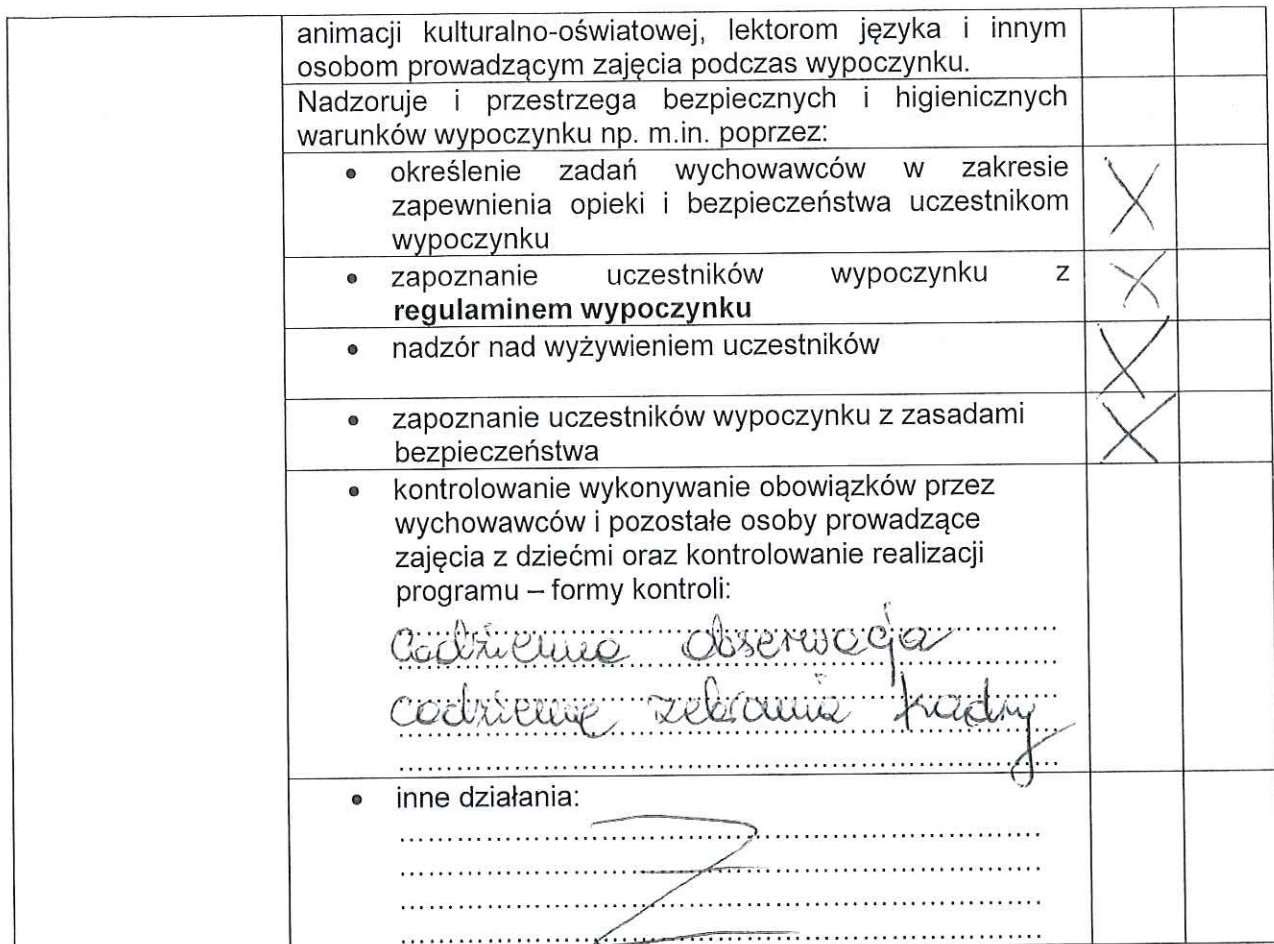 animacji kulturalno-oświatowej, lektorom języka i innym
osobom prowadzącym zajęcia podczas wypoczynku.
Nadzoruje i przestrzega bezpiecznych i higienicznych
warunków wypoczynku np. m.in. poprzez:
• określenie zadań wychowawców w zakresie
zapewnienia opieki i bezpieczeństwa uczestnikom
wypoczynku
X
• zapoznanie uczestników wypoczynku z
regulaminem wypoczynku
X
• nadzór nad wyżywieniem uczestników
X
• zapoznanie uczestników wypoczynku z zasadami
bezpieczeństwa
X
• kontrolowanie wykonywanie obowiązków przez
wychowawców i pozostałe osoby prowadzące
zajęcia z dziećmi oraz kontrolowanie realizacji
programu – formy kontroli:
Codzienna obserwacja
codzienne zebrania kadry
• inne działania: